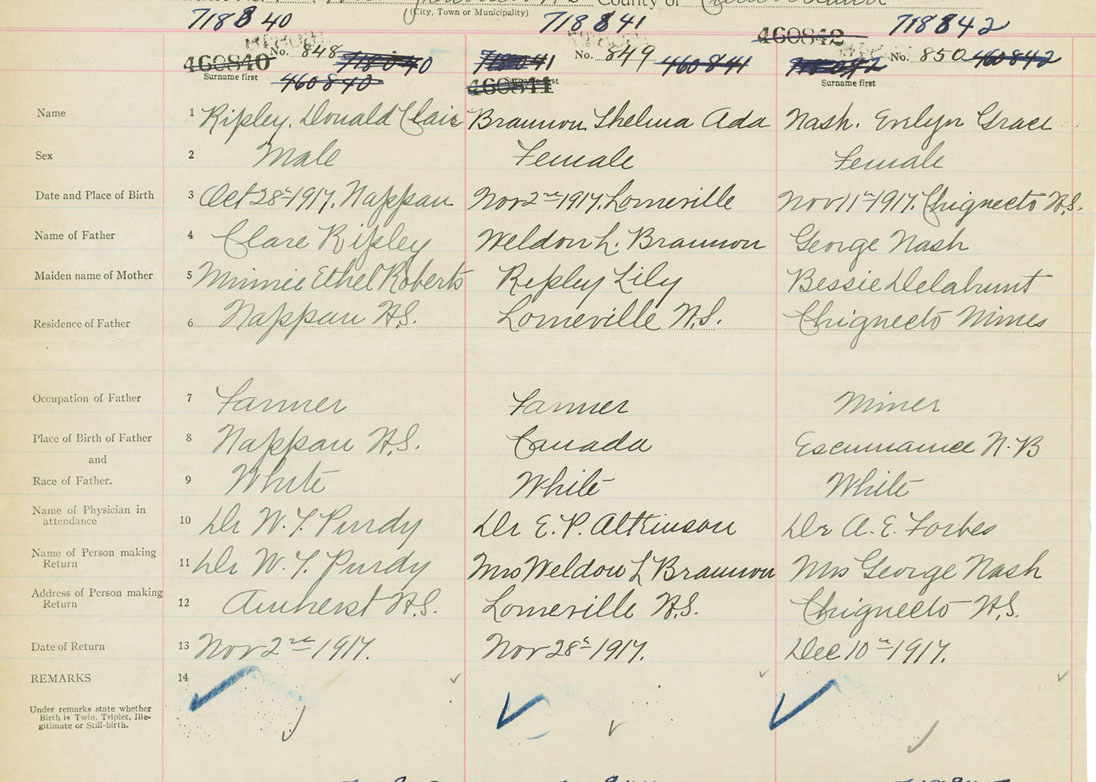 (City, Town or Municipality) County of
718840 718841 718842
460842
460840 No. 848 No. 849 460841 No. 850 460842
Surname first 460840 460841 Surname first
Name 1 Ripley, Donald Clair Brannon Thelma Ada Nash. Evelyn Grace
Sex 2 Male Female Female
Date and Place of Birth 3 Oct 28th 1917, Nappan Nov 2nd 1917, Lorneville Nov 11th 1917. Chignecto N.S.
Name of Father 4 Clare Ripley Weldon L. Brannon George Nash
Maiden name of Mother 5 Minnie Ethel Roberts Ripley Lily Bessie Delahunt
Residence of Father 6 Nappan N.S. Lorneville N.S. Chignecto Mines
Occupation of Father 7 Farmer Farmer Miner
Place of Birth of Father 8 Nappan N.S. Canada Escuminance N.B
and
Race of Father. 9 White White White
Name of Physician in
attendance 10 Dr W. T. Purdy Dr E. P. Altkinson Dr A. E. Forbes
Name of Person making
Return 11 Dr W. T. Purdy Mrs Weldon L Brannon Mrs George Nash
Address of Person making
Return 12 Amherst N.S. Lorneville N.S. Chignecto N.S.
Date of Return 13 Nov 2nd 1917. Nov 28th 1917. Dec 10th 1917.
REMARKS 14
Under remarks state whether
Birth is Twin, Triplet, Ille-
gitimate or Still-birth.